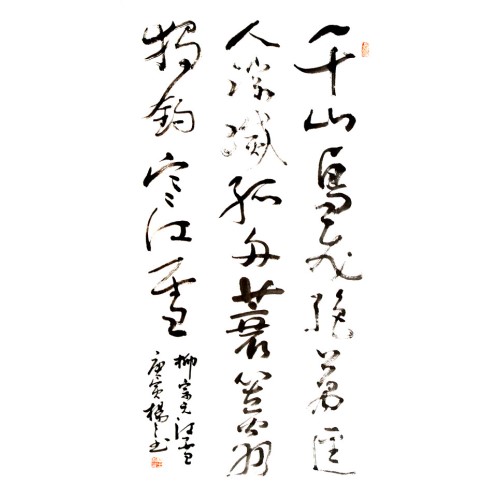 千山鳥飛絕萬徑
人蹤滅孤舟蓑笠翁
獨釣寒江雪
柳宗元江雪
庚寅楊